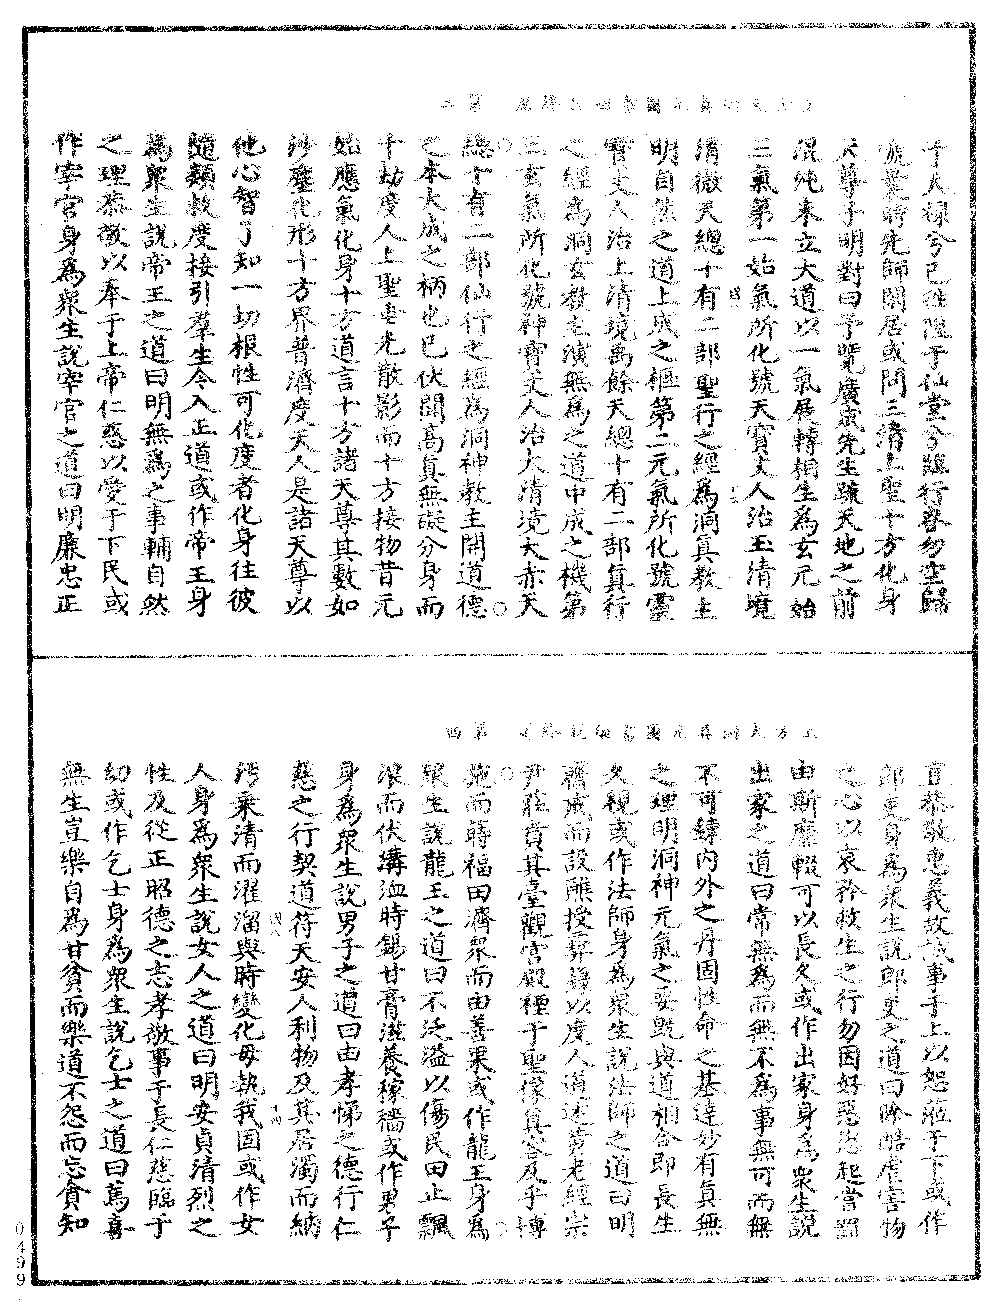 千大椽兮已陛陛于仙堂兮雖行眷勿空歸
號是時先師閒居或問三清上聖十方化身
天尊于明對曰予覽廣成先生疏天地之前
混沌未立大道以一氣展轉相生為玄元始
三氣第一始氣所化號天寶丈人治玉清境
清微天總十有二部聖行之經為洞真教主
明自然之道上成之樞第二元氣所化號靈
寶丈人治上清境禹餘天總十有二部真行
之經為洞玄教主演無為之道中成之機第
三玄氣所化號神寶丈人治太清境太赤天
總十有二部仙行之經為洞神教主開道德
之本大成之柄也已伏聞高真無礙分身而
千劫度人上聖垂光散影而十方接物昔元
始應氣化身十方道言十方諸天尊其數如
沙塵化形十方界普濟度天人是諸天尊以
他心智了知一切根性可化度者化身往彼
隨類救度接引羣生令入正道或作帝王身
為眾生說帝王之道曰明無為之事輔自然
之理恭儉以奉于上帝仁惠以愛于下民或
作宰官身為眾生說宰官之道曰明廉忠正
第四
直恭敬惠義故咸事于上以恕蒞于下或作
郎吏身為眾生說郎吏之道曰除酷虐害物
之心以哀矜救生之行勿因好惡恣起當罰
由斯廉輟可以長久或作出家身為眾生說
出家之道曰常無為而無不為事無可而無
不可鍊內外之丹固性命之基達妙有真無
之理明洞神元氣之要既與道相合即長生
久視或作法師身為眾生說法師之道曰明
齋戒而設醮授籙以度人道述黃老經宗
尹莊賁其臺觀宮殿種于聖像真容及乎博
施而蒔福田濟眾而由善果或作龍王身為
眾生說龍王之道曰不泛溢以傷民田止飄
浪而伏溝洫時錫甘膏滋養稼穡或作男子
身為眾生說男子之道曰由孝悌之德行仁
慈之行契道符天安人利物及其居濁而納
污乘清而濯溜與時變化毋執我固或作女
人身為眾生說女人之道曰明安貞清烈之
性及從正昭德之志孝敬事于長仁慈臨于
幼或作乞士身為眾生說乞士之道曰篤喜
無生豈樂自為甘貧而樂道不怨而忘貪知
0499